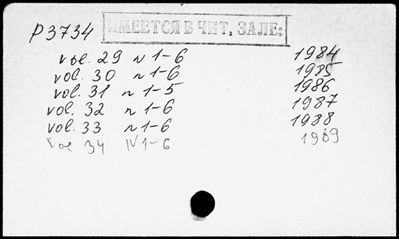 P3734 ИМЕЕТСЯ В ЧИТ. ЗАЛЕ:
vol. 29 N 1-6 1984
vol. 30 N 1-6 1985
vol. 31 N 1-5 1986
vol. 32 N 1-6 1987
vol. 33 N 1-6 1988
vol 34 N 1-6 1989